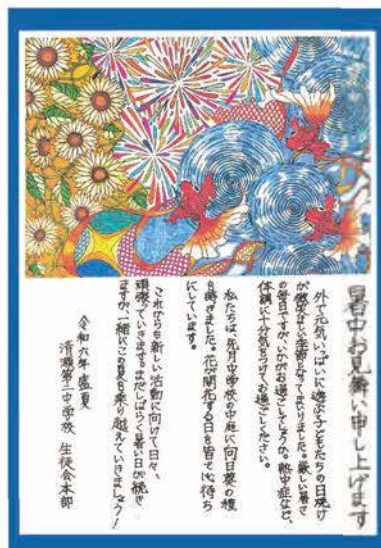 暑中お見舞い申し上げます
外で元気いっぱいに遊ぶ子どもたちの日焼け
が微笑ましい季節となってまいりました。厳しい暑さ
の毎日ですが、いかがお過ごしでしょうか。熱中症など、
体調に十分気をつけてお過ごしください。
私たちは、先月中学校の中庭に向日葵の種
を蒔きました。花が開花する日を皆で心待ち
にしています。
これからも新しい活動に向けて日々、
頑張っていきます。まだしばらく暑い日が続き
ますが、一緒にこの夏を乗り越えていきましょう！
令和六年盛夏
清瀬第二中学校 生徒会本部